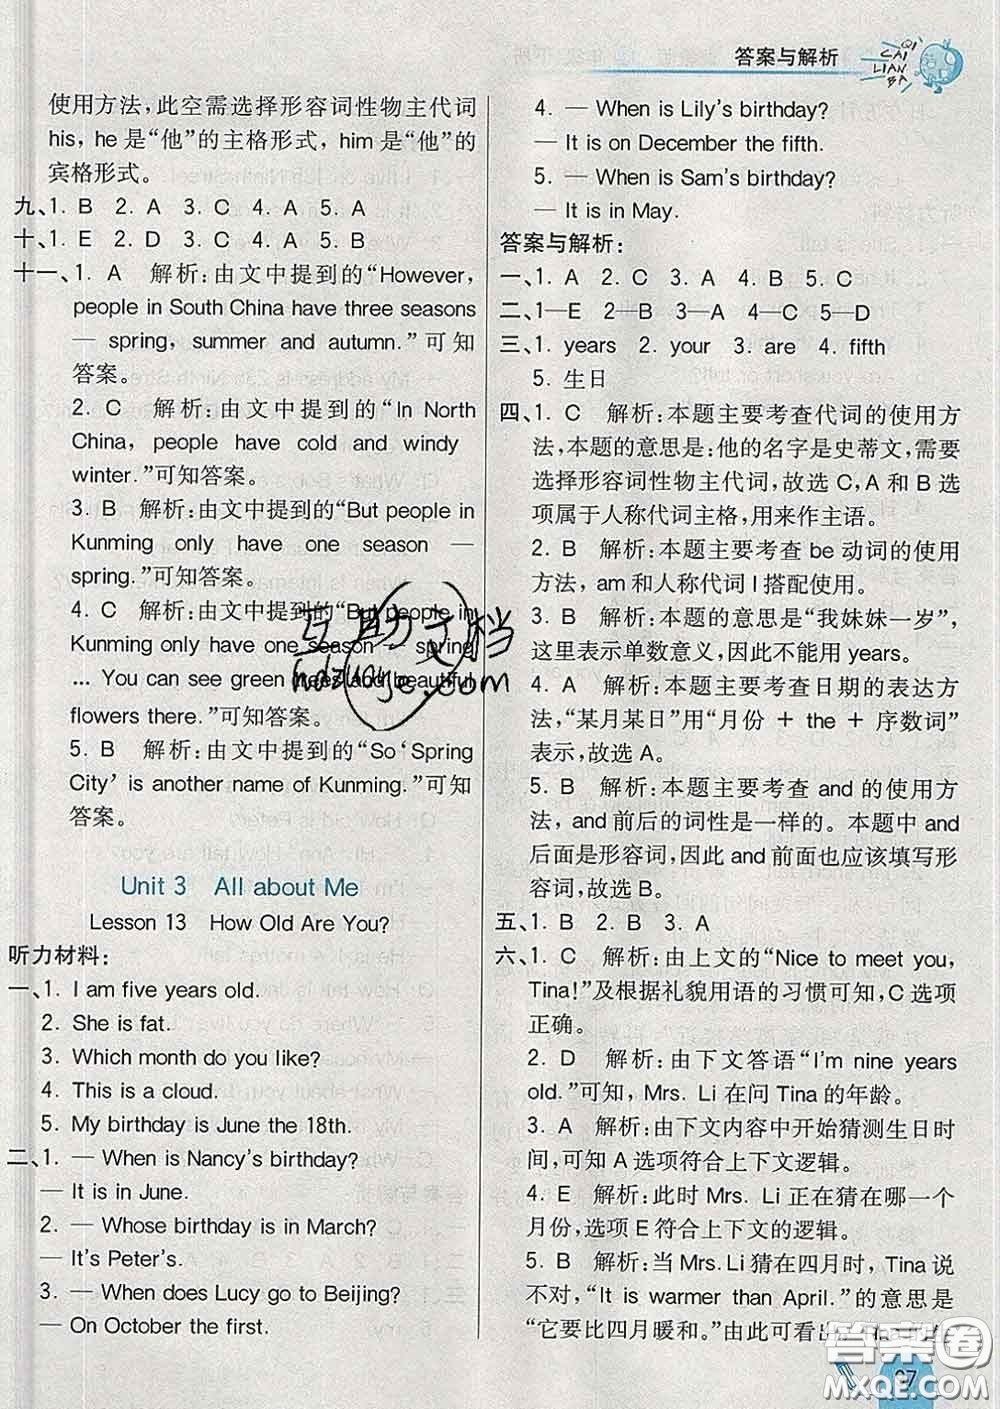 答案与解析
QI CAI LIAN BA
使用方法，此空需选择形容词性物主代词
his, he 是“他”的主格形式，him 是“他”的
宾格形式。
九、1. B 2. A 3. C 4. A 5. A
十、1. E 2. D 3. C 4. A 5. B
十一、1. A 解析：由文中提到的“However,
people in South China have three seasons
— spring, summer and autumn.”可知
答案。
2. C 解析：由文中提到的“In North
China, people have cold and windy
winter.”可知答案。
3. B 解析：由文中提到的“But people in
Kunming only have one season —
spring.”可知答案。
4. C 解析：由文中提到的“But people in
Kunming only have one season — spring
... You can see green trees and beautiful
flowers there.”可知答案。
5. B 解析：由文中提到的“So ‘Spring
City’ is another name of Kunming.”可知
答案。
Unit 3 All about Me
Lesson 13 How Old Are You?
听力材料：
一、1. I am five years old.
2. She is fat.
3. Which month do you like?
4. This is a cloud.
5. My birthday is June the 18th.
二、1. — When is Nancy's birthday?
— It is in June.
2. — Whose birthday is in March?
— It's Peter's.
3. — When does Lucy go to Beijing?
— On October the first.
4. — When is Lily's birthday?
— It is on December the fifth.
5. — When is Sam's birthday?
— It is in May.
答案与解析：
一、1. A 2. C 3. A 4. B 5. C
二、1—E 2—B 3—A 4—C 5—D
三、1. years 2. your 3. are 4. fifth
5. 生日
四、1. C 解析：本题主要考查代词的使用方
法，本题的意思是：他的名字是史蒂文，需要
选择形容词性物主代词，故选 C，A 和 B 选
项属于人称代词主格，用来作主语。
2. B 解析：本题主要考查 be 动词的使用
方法，am 和人称代词 I 搭配使用。
3. B 解析：本题的意思是“我妹妹一岁”，
这里表示单数意义，因此不能用 years。
4. A 解析：本题主要考查日期的表达方
法，“某月某日”用“月份 + the + 序数词”
表示，故选 A。
5. B 解析：本题主要考查 and 的使用方
法，and 前后的词性是一样的。本题中 and
后面是形容词，因此 and 前面也应该填写形
容词，故选 B。
五、1. B 2. B 3. A
六、1. C 解析：由上文的“Nice to meet you,
Tina!”及根据礼貌用语的习惯可知，C 选项
正确。
2. D 解析：由下文答语“I'm nine years
old.”可知，Mrs. Li 在问 Tina 的年龄。
3. A 解析：由下文内容中开始猜测生日时
间，可知 A 选项符合上下文逻辑。
4. E 解析：此时 Mrs. Li 正在猜在哪一个
月份，选项 E 符合上下文的逻辑。
5. B 解析：当 Mrs. Li 猜在四月时，Tina 说
不对，“It is warmer than April.”的意思是
“它要比四月暖和。”由此可看出
97
互助文档
hdzuoye.com
答案圈
MXQE.COM